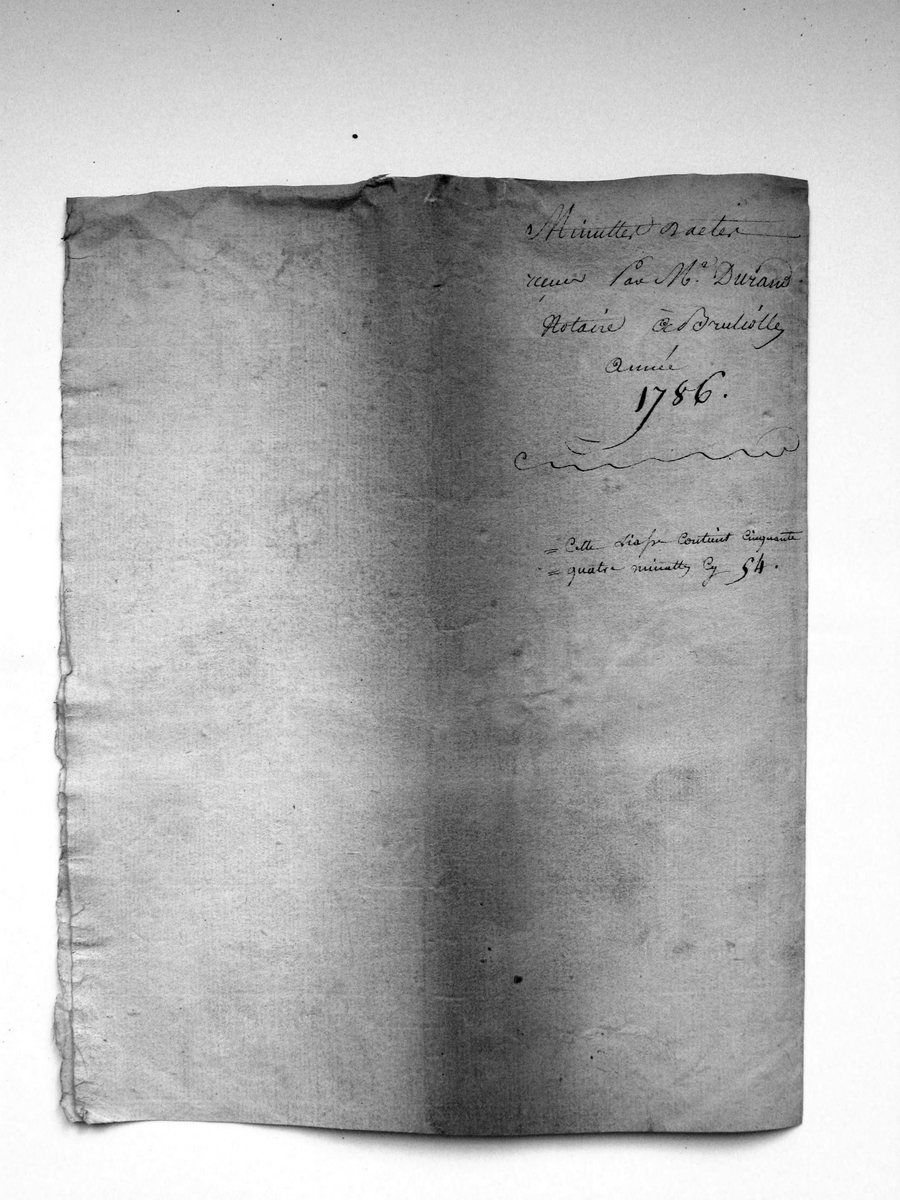 Minuttes d'actes
reçues Par Me. Durand
Notaire à Bruliolles
année
1786.
= Cette Liasse Contient Cinquante
= quatre minuttes Cy 54.